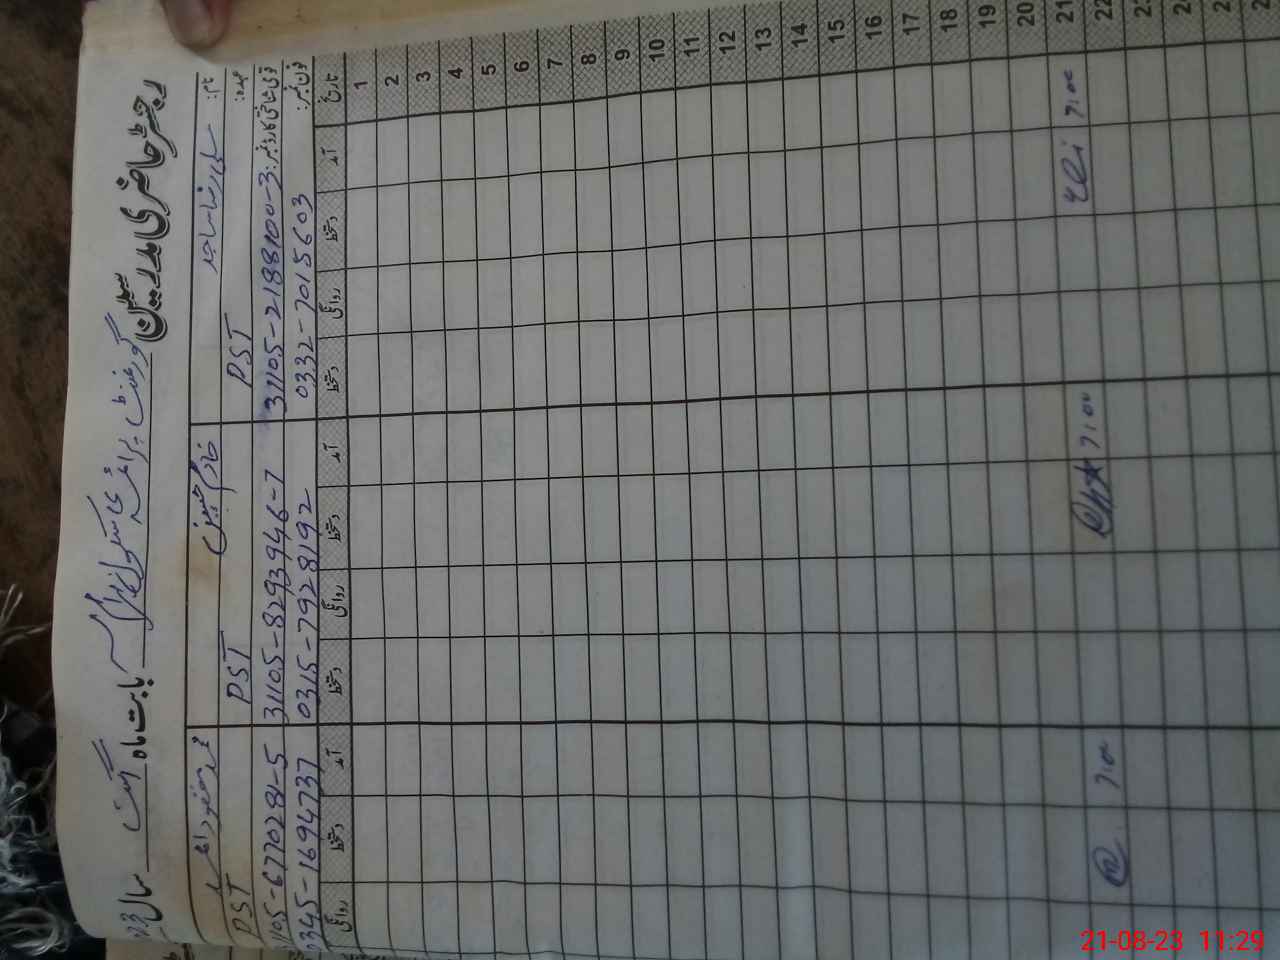 رجسٹر حاضری مدرسین گورنمنٹ پرائمری سکول
بابت ماہ اگست سال
نام:
عہدہ: PST
قومی شناختی کارڈ نمبر: 31105-2188100-3
فون نمبر: 0332-7015603
خادم حسین
PST
31105-8293946-7
0315-7928192
PST
1105-6770281-5
0345-1694737
تاریخ آمد دستخط روانگی دستخط آمد دستخط روانگی دستخط آمد دستخط روانگی
1
2
3
4
5
6
7
8
9
10
11
12
13
14
15
16
17
18
19
20
21 7:00 7:00 7:00
22
21-08-23 11:29